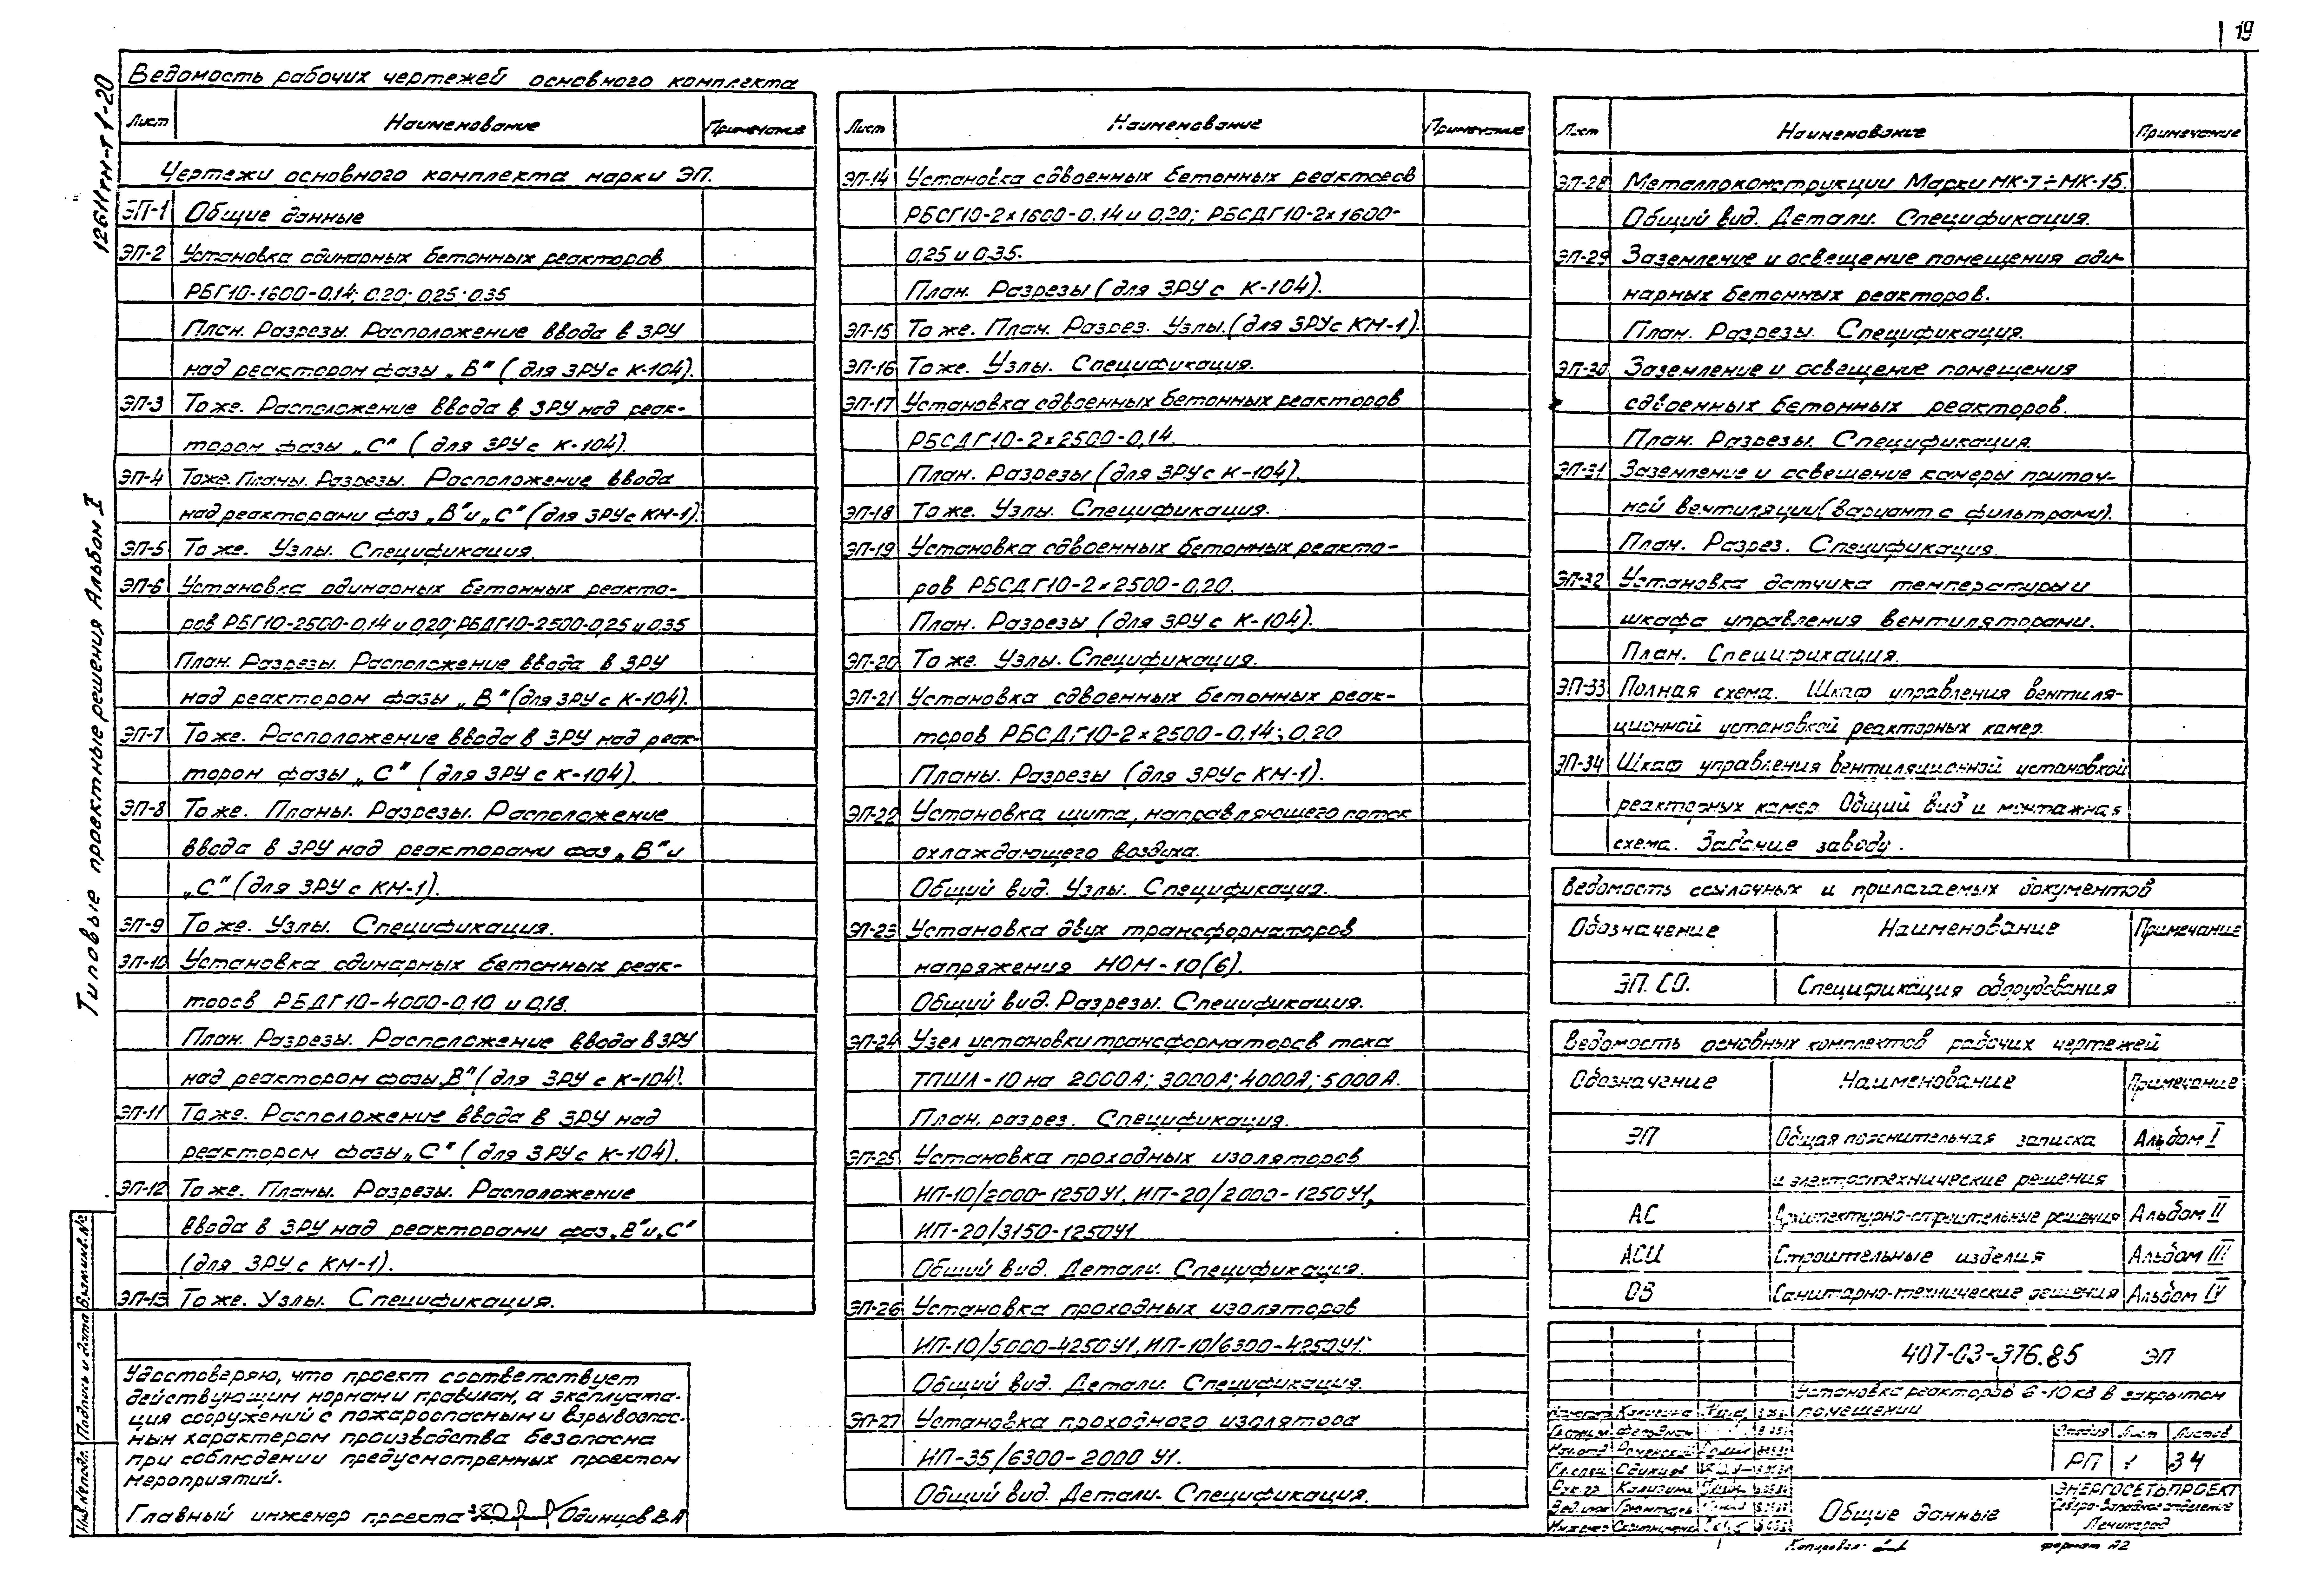 19
12611тм-т1-20
Типовые проектные решения Альбом I
Ведомость рабочих чертежей основного комплекта
Лист Наименование Примечание
Чертежи основного комплекта марки ЭП.
ЭП-1 Общие данные
ЭП-2 Установка одинарных бетонных реакторов
РБГ10-1600-0.14; 0.20; 0.25; 0.35
План. Разрезы. Расположение ввода в ЗРУ
над реактором фазы „В" (для ЗРУ с К-104).
ЭП-3 То же. Расположение ввода в ЗРУ над реак-
тором фазы „С" (для ЗРУ с К-104).
ЭП-4 То же. Планы. Разрезы. Расположение ввода
над реакторами фаз „В" и „С" (для ЗРУ с КМ-1).
ЭП-5 То же. Узлы. Спецификация.
ЭП-6 Установка одинарных бетонных реакто-
ров РБГ10-2500-0,14 и 0,20; РБДГ10-2500-0,25 и 0,35
План. Разрезы. Расположение ввода в ЗРУ
над реактором фазы „В" (для ЗРУ с К-104).
ЭП-7 То же. Расположение ввода в ЗРУ над реак-
тором фазы „С" (для ЗРУ с К-104).
ЭП-8 То же. Планы. Разрезы. Расположение
ввода в ЗРУ над реакторами фаз „В" и
„С" (для ЗРУ с КМ-1).
ЭП-9 То же. Узлы. Спецификация.
ЭП-10 Установка одинарных бетонных реак-
торов РБДГ10-4000-0.10 и 0,18.
План. Разрезы. Расположение ввода в ЗРУ
над реактором фазы „В" (для ЗРУ с К-104).
ЭП-11 То же. Расположение ввода в ЗРУ над
реактором фазы „С" (для ЗРУ с К-104).
ЭП-12 То же. Планы. Разрезы. Расположение
ввода в ЗРУ над реакторами фаз „В" и „С"
(для ЗРУ с КМ-1).
ЭП-13 То же. Узлы. Спецификация.
Удостоверяю, что проект соответствует
действующим нормам и правилам, а эксплуата-
ция сооружений с пожароопасным и взрывоопас-
ным характером производства безопасна
при соблюдении предусмотренных проектом
мероприятий.
Главный инженер проекта Одинцов В.А
Взам.инв.№
Подпись и дата
Инв.№ подл.
Лист Наименование Примечание
ЭП-14 Установка сдвоенных бетонных реакторов
РБСГ10-2×1600-0.14 и 0,20; РБСДГ10-2×1600-
0,25 и 0.35.
План. Разрезы (для ЗРУ с К-104).
ЭП-15 То же. План. Разрез. Узлы. (для ЗРУ с КМ-1).
ЭП-16 То же. Узлы. Спецификация.
ЭП-17 Установка сдвоенных бетонных реакторов
РБСДГ10-2×2500-0,14.
План. Разрезы (для ЗРУ с К-104).
ЭП-18 То же. Узлы. Спецификация.
ЭП-19 Установка сдвоенных бетонных реакто-
ров РБСДГ10-2×2500-0,20.
План. Разрезы (для ЗРУ с К-104).
ЭП-20 То же. Узлы. Спецификация.
ЭП-21 Установка сдвоенных бетонных реак-
торов РБСДГ10-2×2500-0,14; 0,20
Планы. Разрезы (для ЗРУ с КМ-1).
ЭП-22 Установка щита, направляющего поток
охлаждающего воздуха.
Общий вид. Узлы. Спецификация.
ЭП-23 Установка двух трансформаторов
напряжения НОМ-10(6).
Общий вид. Разрезы. Спецификация.
ЭП-24 Узел установки трансформаторов тока
ТПШЛ-10 на 2000А; 3000А; 4000А; 5000А.
План, разрез. Спецификация.
ЭП-25 Установка проходных изоляторов
ИП-10/2000-1250У1, ИП-20/2000-1250У1,
ИП-20/3150-1250У1
Общий вид. Детали. Спецификация.
ЭП-26 Установка проходных изоляторов
ИП-10/5000-4250У1, ИП-10/6300-4250У1.
Общий вид. Детали. Спецификация.
ЭП-27 Установка проходного изолятора
ИП-35/6300-2000 У1.
Общий вид. Детали. Спецификация.
Лист Наименование Примечание
ЭП-28 Металлоконструкции Марки МК-7÷МК-15.
Общий вид. Детали. Спецификация.
ЭП-29 Заземление и освещение помещения оди-
нарных бетонных реакторов.
План. Разрезы. Спецификация.
ЭП-30 Заземление и освещение помещения
сдвоенных бетонных реакторов.
План. Разрезы. Спецификация
ЭП-31 Заземление и освещение камеры приточ-
ной вентиляции (вариант с фильтрами).
План. Разрез. Спецификация.
ЭП-32 Установка датчика температуры и
шкафа управления вентиляторами.
План. Спецификация.
ЭП-33 Полная схема. Шкаф управления вентиля-
ционной установкой реакторных камер.
ЭП-34 Шкаф управления вентиляционной установкой
реакторных камер. Общий вид и монтажная
схема. Задание заводу.
Ведомость ссылочных и прилагаемых документов
Обозначение Наименование Примечание
ЭП. СО. Спецификация оборудования
Ведомость основных комплектов рабочих чертежей
Обозначение Наименование Примечание
ЭП Общая пояснительная записка Альбом I
и электротехнические решения
АС Архитектурно-строительные решения Альбом II
АСИ Строительные изделия Альбом III
ОВ Санитарно-технические решения Альбом IV
407-03-376.85 ЭП
Установка реакторов 6-10 кВ в закрытом
помещении
Стадия Лист Листов
РП 1 34
Н.контр Калигина
Нач.отд Роменский
Гл.спец Одинцов
Рук.гр Калигина
Общие данные
ЭНЕРГОСЕТЬПРОЕКТ
Северо-Западное отделение
Ленинград
Копировал:
формат А2